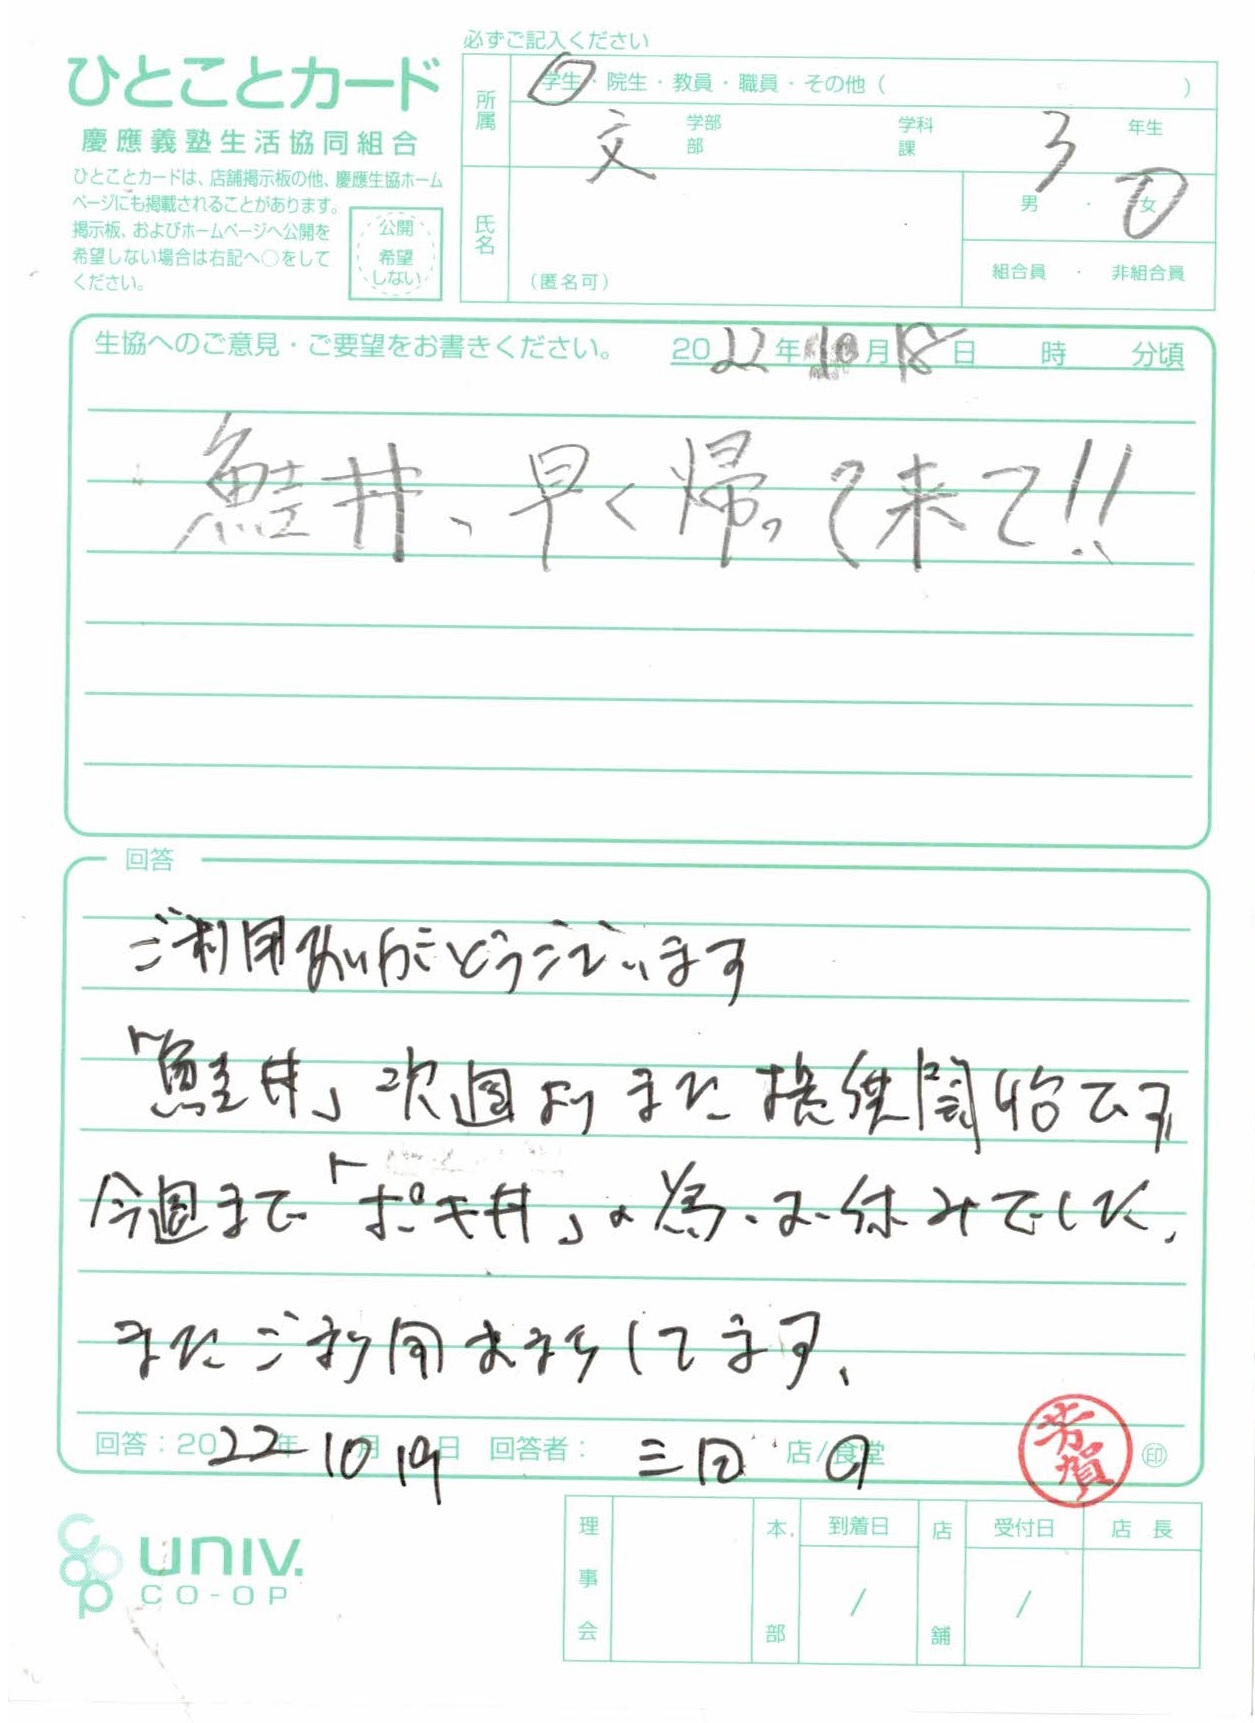 必ずご記入ください
ひとことカード
慶應義塾生活協同組合
ひとことカードは、店舗掲示板の他、慶應生協ホーム
ページにも掲載されることがあります。
掲示板、およびホームページへ公開を
希望しない場合は右記へ○をして
ください。
公開
希望
しない
所属
学生・院生・教員・職員・その他( )
文 学部 部 学科 課 3 年生
氏名
(匿名可)
男・女
組合員・非組合員
生協へのご意見・ご要望をお書きください。 2022年10月18日 時 分頃
鮭丼、早く帰って来て!!
回答
ご利用ありがとうございます
「鮭丼」次週よりまた提供開始です
今週まで「ポキ丼」の為、お休みでした。
またご利用お待ちしてます。
回答:2022年10月19日 回答者: 三田 店/食堂
芳賀
印
univ.
CO-OP
理事会
本部
到着日
/
店舗
受付日
/
店長